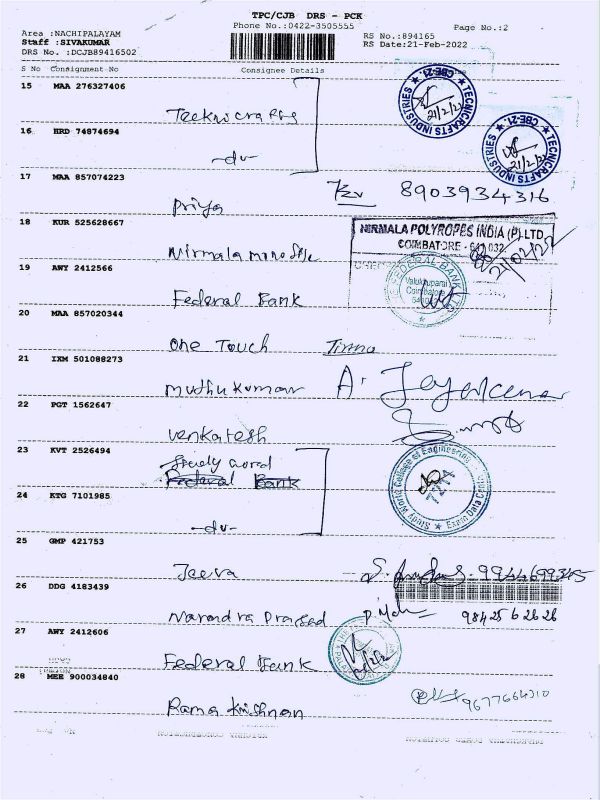 TPC/CJB DRS - PCK
Phone No.:0422-3505555
Page No.:2
Area :NACHIPALAYAM
Staff :SIVAKUMAR
DRS No. :DCJB89416502
RS No.:894165
RS Date:21-Feb-2022
S No Consignment No Consignee Details
15 MAA 276327406
TECNICRAFTS INDUSTRIES ★ CBE-21. ★
21/2/22
16 HRD 74874694
-do-
TECNICRAFTS INDUSTRIES ★ CBE-21. ★
21/2/22
17 MAA 857074223
Priya
8903934316
18 KUR 525628667
Nirmala
NIRMALA POLYROPES INDIA (P) LTD.
COIMBATORE - 641 032
21/02/22
19 AWY 2412566
Federal Bank
FEDERAL BANK
Coimbatore
20 MAA 857020344
One Touch
21 IXM 501088273
muthukumar A. Jeyakumar
22 PGT 1562647
Venkatesh
23 KVT 2526494
Federal Bank
Study World College of Engineering
24 KTG 7101985
-do-
25 GMP 421753
Jeeva
9944699345
26 DDG 4183439
Narendra Prasad
98425 62626
27 AWY 2412606
Federal Bank
28 MEE 900034840
Rama Krishnan
9677664310